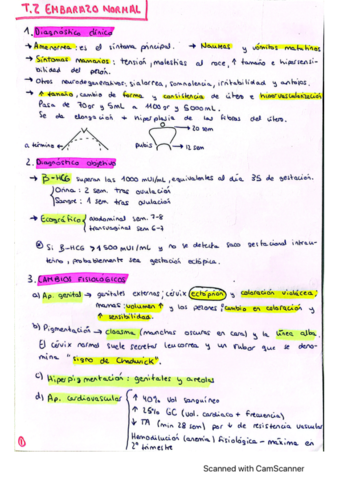 T.2 EMBARAZO NORMAL
1. Diagnóstico clínico
→ Amenorrea: es el síntoma principal. → Náuseas y vómitos matutinos
→ Síntomas mamarios: tensión, molestias al roce, ↑ tamaño e hipersensi-
bilidad del pezón.
→ Otros neurodegenerativos; sialorrea, somnolencia, irritabilidad y antojos.
→ ↑ tamaño, cambio de forma y consistencia de útero e hipervascularización
Pasa de 70gr y 5mL a 1100gr y 5000mL.
Se da elongación + hiperplasia de las fibras del útero.
→ 20 sem
a término ←
pubis ← → 12 sem
2. Diagnóstico objetivo
→ β-HCG superan las 1000 mUI/mL, equivalentes al día 35 de gestación.
Orina: 2 sem. tras ovulación
Sangre: 1 sem. tras ovulación
→ Ecográfico abdominal sem. 7-8
transvaginal sem 6-7
Si β-HCG > 1500 mUI/mL y no se detecta saco gestacional intrau-
terino, probablemente sea gestación ectópica.
3. CAMBIOS FISIOLÓGICOS
a) Ap. genital → genitales externos; cérvix ectópion y coloración violácea;
mamas: volumen ↑ y los pezones; cambio en coloración y
↑ sensibilidad.
b) Pigmentación → cloasma (manchas oscuras en cara) y la línea alba.
El cérvix normal suele secretar leucorrea y un rubor que se deno-
mina "Signo de Chadwick".
c) Hiperpigmentación: genitales y areolas
d) Ap. cardiovascular ↑ 40% vol sanguíneo
↑ 25% GC (vol. cardiaco + frecuencia)
↓ TA (min 28 sem) por ↓ de resistencia vascular
Hemodilución (anemia) fisiológica - máxima en
2º trimestre
1
Scanned with CamScanner